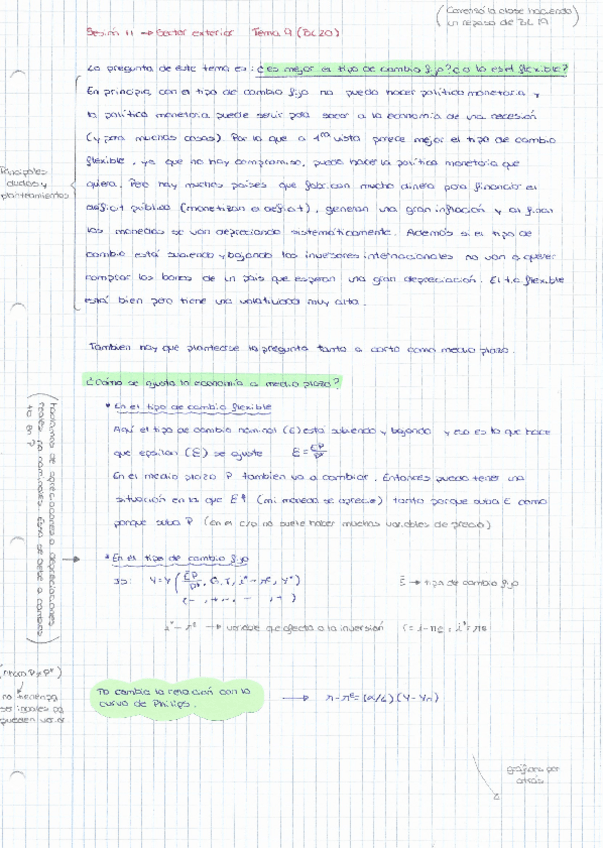 (Comenzó la clase haciendo
un repaso de BL 19)
Sesión 11 → Sector exterior Tema 9 (BL20)
La pregunta de este tema es: ¿es mejor el tipo de cambio fijo? ¿o lo es el flexible?
En principio, con el tipo de cambio fijo no puedo hacer política monetaria y
la política monetaria puede servir para sacar a la economía de una recesión
(y para muchas cosas). Por lo que a 1ª vista parece mejor el tipo de cambio
flexible, ya que no hay compromiso, puedo hacer la política monetaria que
quiera. Pero hay muchos países que fabrican mucho dinero para financiar el
déficit público (monetizan el déficit), generan una gran inflación y al final
las monedas se van depreciando sistemáticamente. Además si el tipo de
cambio está subiendo y bajando los inversores internacionales no van a querer
comprar los bonos de un país que esperan una gran depreciación. El t.c flexible
está bien pero tiene una volatilidad muy alta.
Principales
dudas y
planteamientos
También hay que plantearse la pregunta tanto a corto como medio plazo.
¿Cómo se ajusta la economía a medio plazo?
* En el tipo de cambio flexible
Aquí el tipo de cambio nominal (E) está subiendo y bajando y eso es lo que hace
que epsilon (Ɛ) se ajuste Ɛ = EP/P*
En el medio plazo P también va a cambiar. Entonces puedo tener una
situación en la que Ɛ↑ (mi moneda se aprecie) tanto porque suba E como
porque suba P (en el c/p no suele haber muchas variables de precio)
hablamos de apreciaciones o depreciaciones
reales no nominales. Esto se debe a cambios
en P
* En el tipo de cambio fijo
IS: Y = Y (ĒP/P*, G, T, i* - πe, Y*)
(- , + , - , - , +)
Ē → tipo de cambio fijo
i* - πe → variable que afecta a la inversión
no tienen pq
ser iguales pq
pueden variar
Tb cambia la relación con la
curva de Philips.
→ π - πe = (α/L) (Y - Yn)
gráfica por
atrás